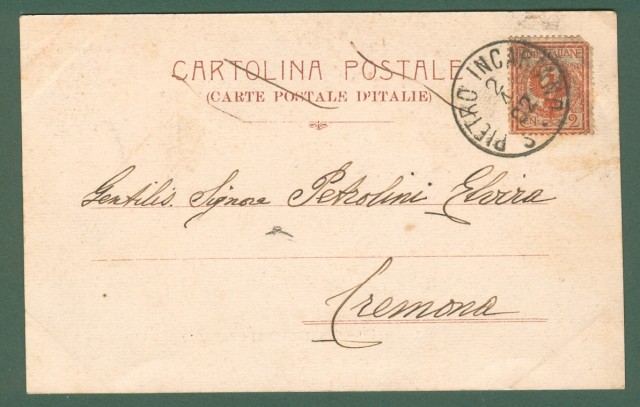 CARTOLINA POSTALE
(CARTE POSTALE D'ITALIE)
S. PIETRO INCARIANO
2
Gentilis. Signora Petrolini Elvira
Cremona